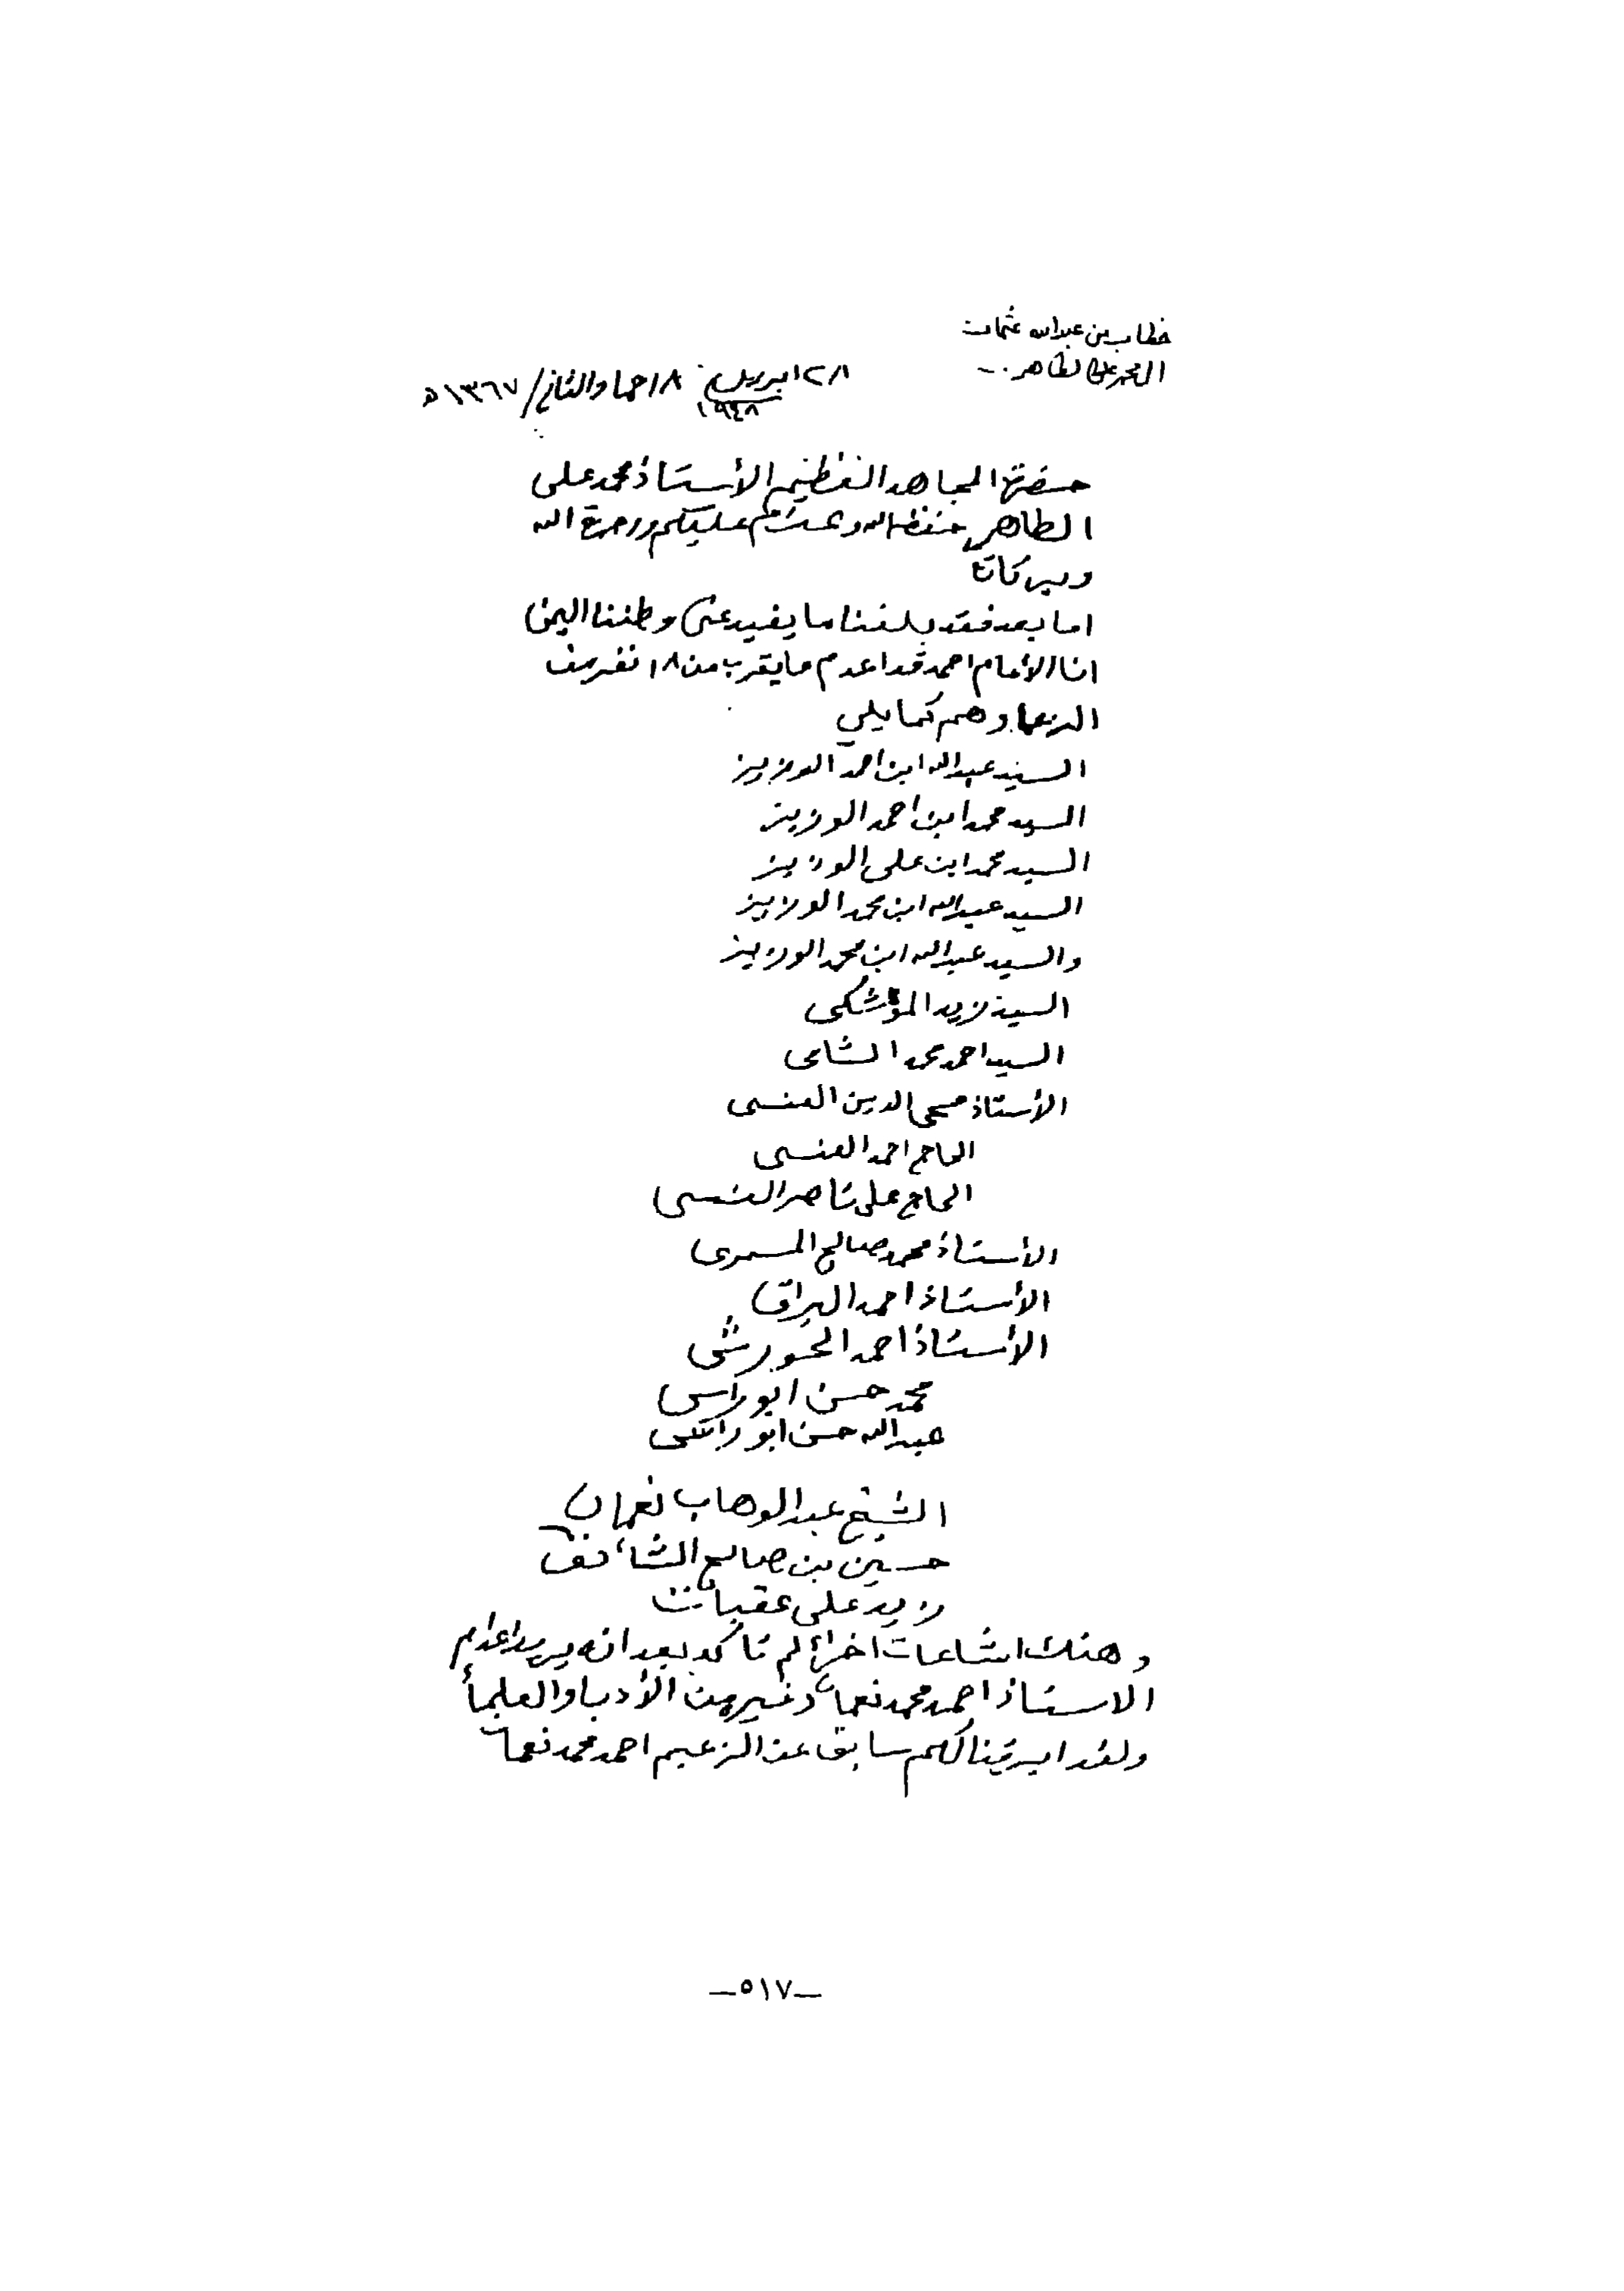 خطاب من عبدالله عثمان
الى محمد على الطاهر
٢٨ ابريل ١٩٤٨ ١٨ جماد الثاني / ١٣٦٧ هـ
حضرة المجاهد العظيم الأستاذ محمد على
الطاهر حفظه الله عليكم ورحمة الله
وبركاته
اما بعد فقد بلغنا ما يفيد عن وطننا اليمن
ان الأمام احمد قد اعدم ما يقرب من ١٨ نفر من
الزعما وهم كما يلي
السيد عبدالله ابن احمد الوزير
السيد محمد ابن احمد الوزير
السيد محمد ابن على الوزير
السيد عبدالله ابن محمد الوزير
والسيد عبدالله ابن محمد الوزير
السيد زيد الموشكى
السيد احمد محمد الشامى
الأستاذ محى الدين العنسى
الحاج احمد العنسى
الحاج على ناصر العنسى
الأستاذ محمد صالح المسمرى
الأستاذ احمد البراق
الأستاذ احمد الحورشى
محمد حسن ابو راس
عبدالله حسن ابو راس
الشيخ عبدالوهاب نعمان
حسين بن صالح الشائف
زيد على عقبات
وهنك اشاعات اخرا لم تأكد بعد انه يريد اعدام
الاستاذ احمد محمد نعمان وغيره من الأدبا والعلمأ
ولقد ابرقنا لكم سابق عن الزعيم احمد محمد نعمان
—٥١٧—